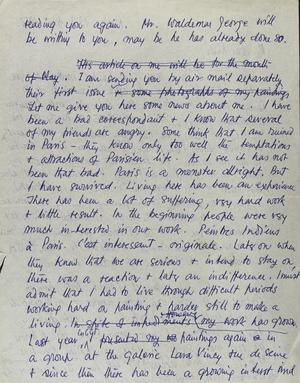 reading you again. Mr. Waldemar George will
be writing to you, may be he has already done so.
His article on me will be for the month
of May. I am sending you by air mail separately
their first issue + some photographs of my painting.
Let me give you here some news about me. I have
been a bad correspondant + I know that several
of my friends are angry. Some think that I am ruined
in Paris – they know only too well the temptations
+ attractions of Parisian life. As I see it has not
been that bad. Paris is a monster allright. But
I have survived. Living here has been an experience
There has been a lot of suffering, very hard work
+ little result. In the beginning people were very
much interested in our work. Peintres Indiens
à Paris. C'est interessent – originale. Later on when
they knew that we are serious + intend to stay on
there was a reaction + later an indifference. I must
admit that I had to live through difficult periods
working hard on painting + harder still to make a
living. In spite of my work has grown.
Last year, I presented my paintings again in
a group at the Galerie Lara Vincy, rue de seine
+ since then there has been a growing interest and